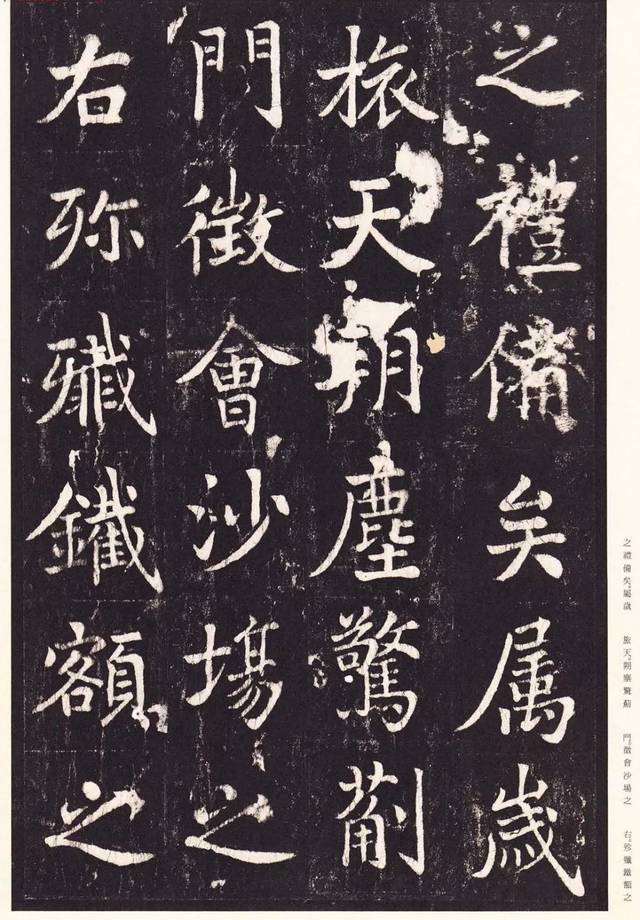 之禮備矣属歲
旅天朔塵驚薊
門徵會沙場之
右殄殲鐵額之
之禮備矣。屬歲
旅天。朔塵驚薊
門。徵會沙場之
右。殄殲鐵額之